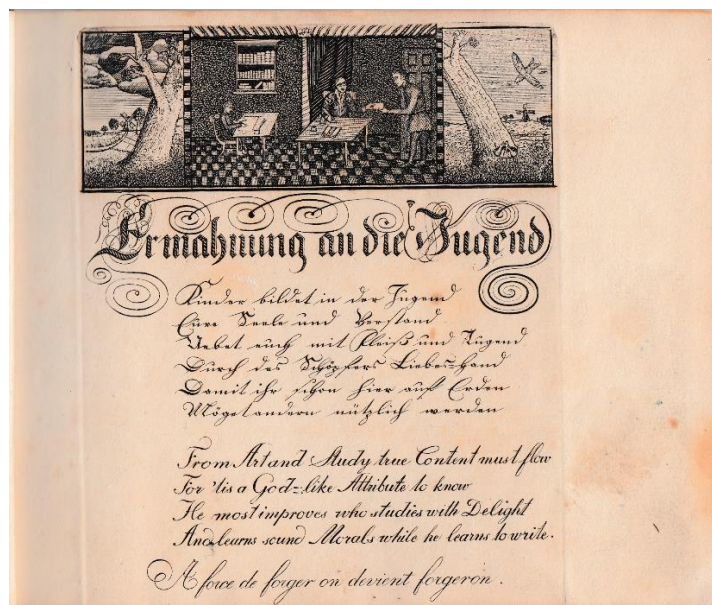 Ermahnung an die Jugend
Kinder bildet in der Jugend
Eure Seele und Verstand
Uebet euch mit Fleiß und Tugend
Durch des Schöpfers Liebes=Hand
Damit ihr schon hier auf Erden
Möget andern nützlich werden
From Art and Study true Content must flow
For 'tis a God=like Attribute to know
He most improves who studies with Delight
And learns sound Morals while he learns to write.
A force de forger on devient forgeron.